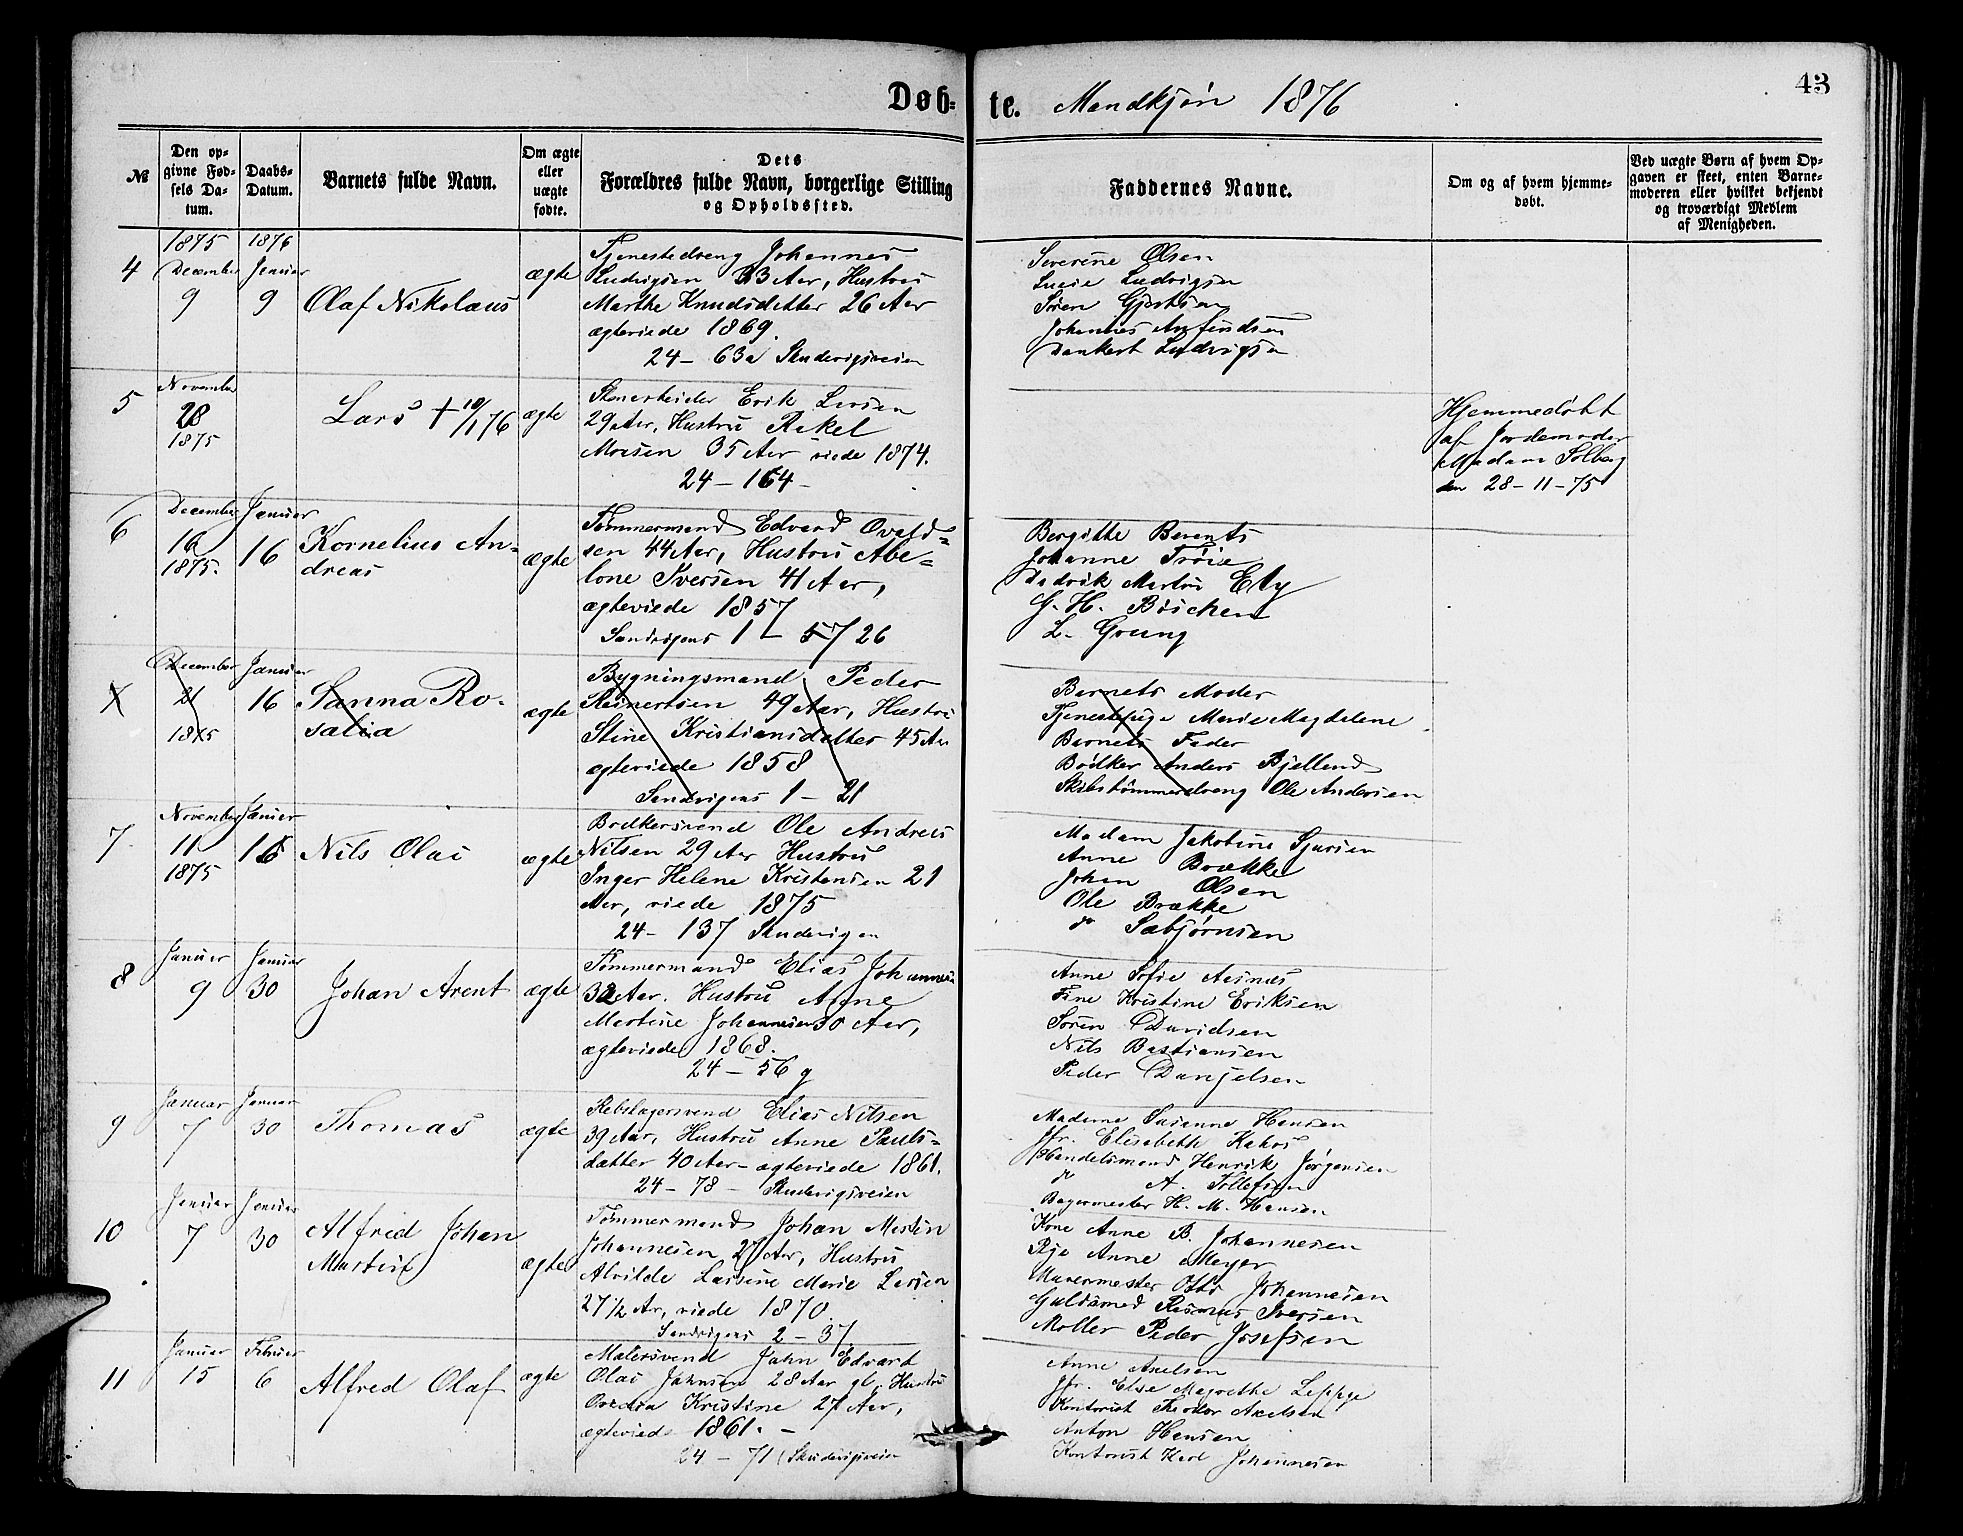 43
Døb-
te. Mandkjøn 1876
№
Den op-
givne Fød-
sels Da-
tum.
Daabs-
Datum.
Barnets fulde Navn.
Om ægte
eller
uægte
fødte.
Dets
Forældres fulde Navn, borgerlige Stilling
og Opholdssted.
Faddernes Navne.
Om og af hvem hjemme-
døbt.
Ved uægte Børn af hvem Op-
gaven er skeet, enten Barne-
moderen eller hvilket bekjendt
og troværdigt Medlem
af Menigheden.
4
1875
December
9
1876
Januar
9
Olaf Nikolaus
ægte
Tjenestedreng Johannes
Ludvigsen 33 Aar, Hustru
Marthe Knudsdatter 26 Aar
ægteviede 1869.
24 - 63a Skudevigsveien
Severine Olsen
Lucie Ludvigsen
Søren
Johannes Anfindsen
Dankert Ludvigsen
5
November
28
1875
Lars + 10/1 76
ægte
Erik Larsen
29 Aar, Hustru Rakel
Monsen 35 Aar viede 1874.
24 - 164 -
Hjemmedøbt
af Jordemoder
Madam Solberg
den 28 - 11 - 75
6
December
16
1875.
Januar
16
Kornelius An-
dreas
ægte
Tømmermand Edvard
sen 44 Aar, Hustru Abe-
lone Iversen 41 Aar,
ægteviede 1857
Sandvigens 1 - 26
Bergitte Berents
Johanne Trøie
Martin Ely
G. H. Büschen
L. Grung
December
21
1875
Januar
16
Sanna Ro-
salia
ægte
Bygningsmand Peder
Reinertsen 49 Aar, Hustru
Stine Kristiansdatter 45 Aar
ægteviede 1858
Sandvigens 1 - 21
Barnets Moder
Tjenestepige Marie Magdalene
Barnets Fader
Bødker Anders Bjelland
Skibstømmerdreng Ole Andersen
7
November
11
1875
Januar
16
Nils Olai
ægte
Bødkersvend Ole Andreas
Nilsen 29 Aar Hustru
Inger Helene Kristensen 21
Aar, viede 1875
24 - 137 Skudevigen
Madam Jakobine Sjursen
Anne Brække
Johan Olsen
Ole Brække
do Sæbjørnsen
8
Januar
9
Januar
30
Johan Arent
ægte
Tømmermand Elias Johannesen
32 Aar. Hustru Anne
Martine Johannesen 30 Aar,
ægteviede 1868.
24 - 56 g
Anne Sofie Aasnæs
Tine Kristine Eriksen
Søren Davidsen
Nils Bastiansen
Peder Danjelsen
9
Januar
7
Januar
30
Thomas
ægte
Rebslagersvend Elias Nilsen
39 Aar, Hustru Anne Pauls-
datter 40 Aar - ægteviede 1861.
24 - 78 - Skudevigsveien
Madame Susanne Hansen
Jfr. Elisabeth Kahrs
Handelsmand Henrik Jørgensen
do A. Tollefsen
Bagermester H. M. Hansen
10
Januar
7
Januar
30
Alfred Johan
Martin
ægte
Tømmermand Johan Martin
Johannesen, 27 Aar, Hustru
Alvilde Larsine Marie Larsen
27 1/2 Ar, viede 1870.
Sandvigens 2 - 37
Kone Anne B. Johannesen
Pige Anne Meyer
Murermester Otto Johannesen
Guldsmed Rasmus Iversen
Møller Peder Josefsen
11
Januar
15
Februar
6
Alfred Olaf
ægte
Malersvend John Edvart
Olai Jahnsen 28 Aar gl. Hustru
Ovedia Kristine 27 Aar,
ægteviede 1861. -
24 - 71 (Skudevigsveien
Anne Axelsen
Jfr. Else Magrethe Leppge
Kontorist Teodor Axelsen
Anton Hansen
Kontorist Karl Johannesen